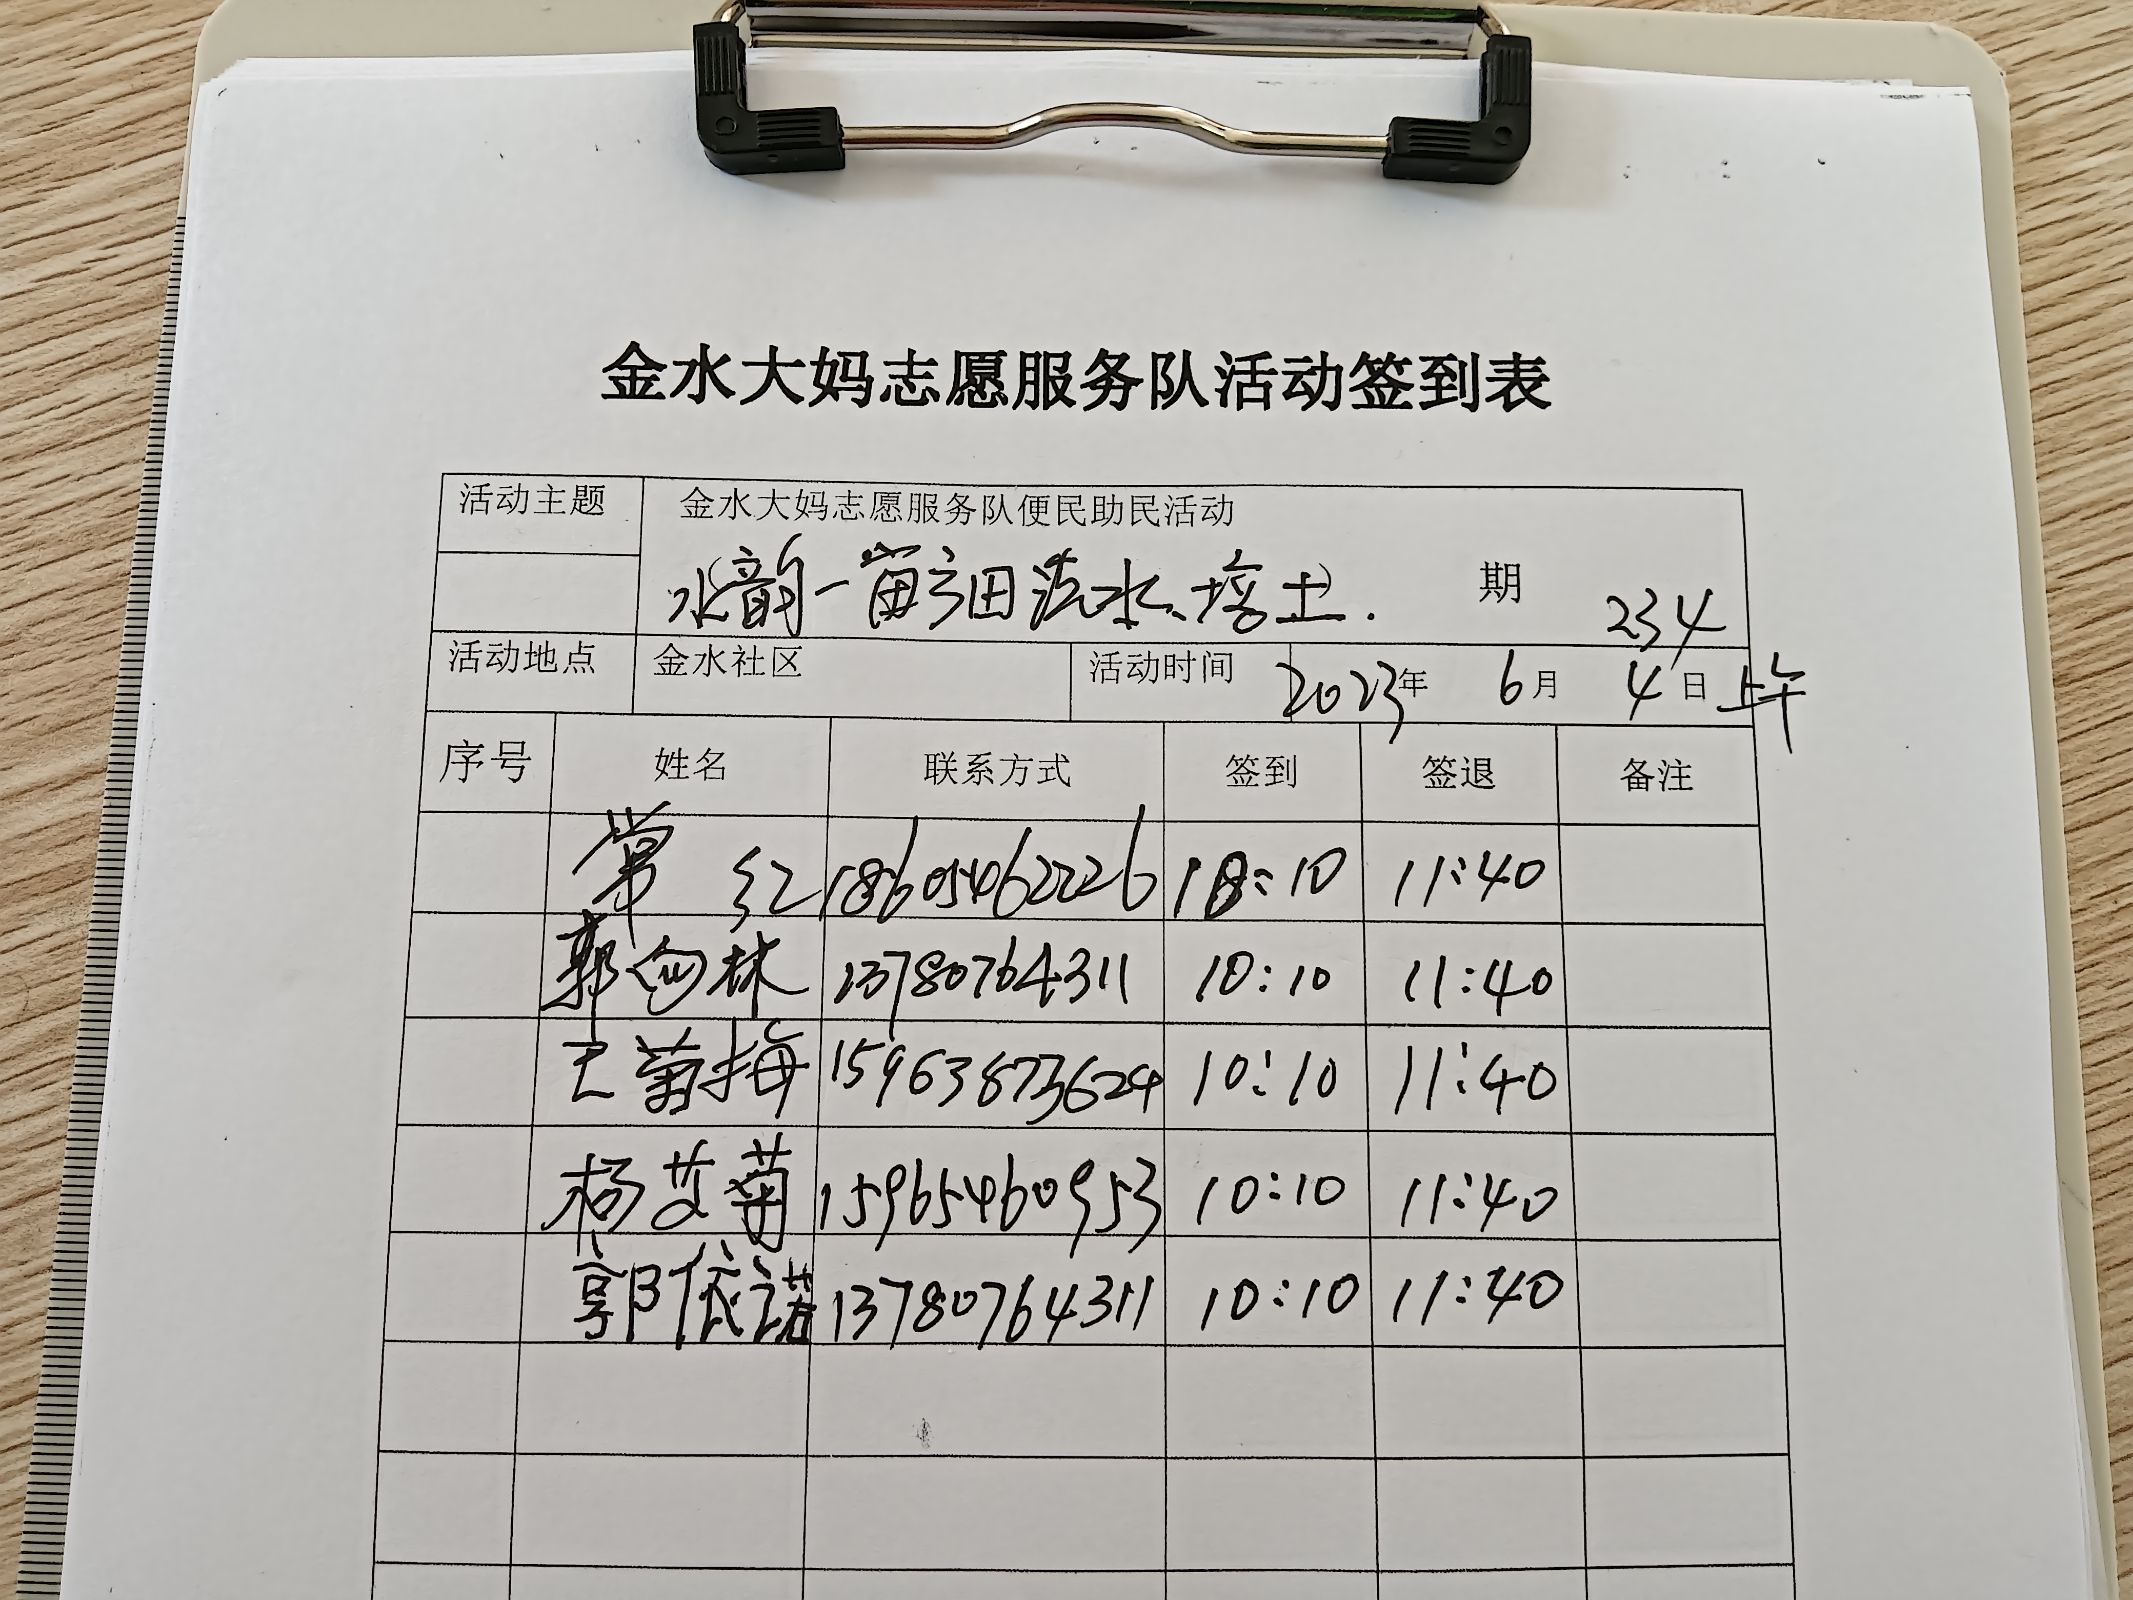 金水大妈志愿服务队活动签到表
活动主题 金水大妈志愿服务队便民助民活动
水韵一亩方田浇水、培土. 期 234
活动地点 金水社区 活动时间 2023年 6月 4日上午
序号 姓名 联系方式 签到 签退 备注
常红 18605462226 10:10 11:40
郭 林 13780764311 10:10 11:40
王菊梅 15963873624 10:10 11:40
杨艾菊 15965460953 10:10 11:40
郭依诺 13780764311 10:10 11:40